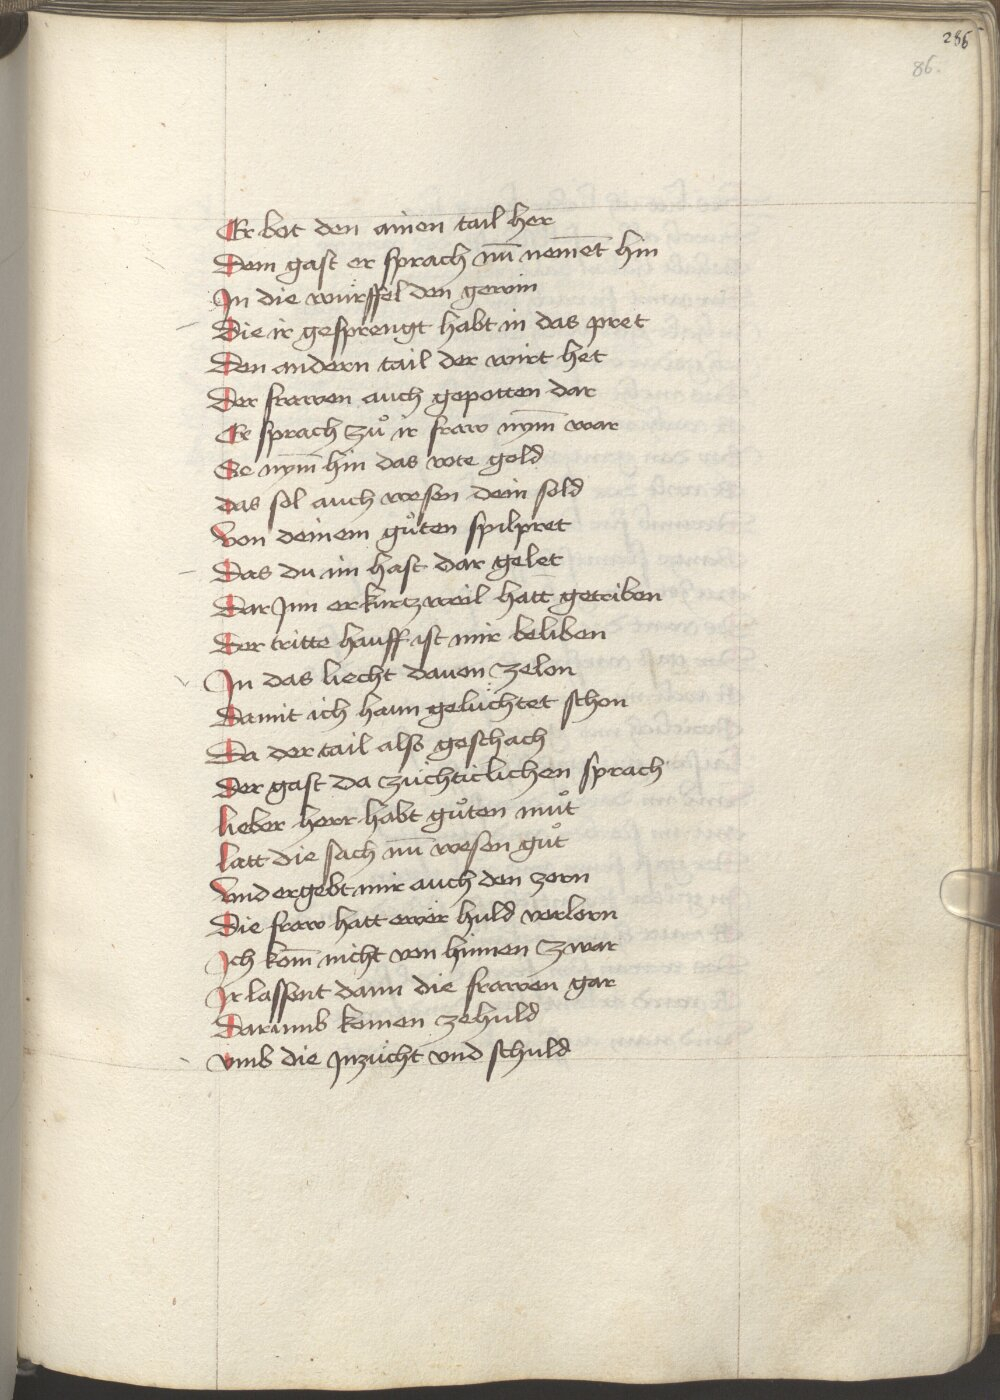 286
86.
Er bot den ainen tail her
Dem gast er sprach nu̅ neme̅t hin
In die würffel den gewin
Die ir gesprengt habt in das pret
Den andern tail der wirt het
Der frawen auch gepotten dar
Er sprach zuͦ ir fraw nym̅ war
Se nym̅ hin das rote gold
das sol auch wesen dein sold
von deinem guͦten spilpret
Das du im hast dar gelet
Dar Jnn er kurtzweil hatt getriben
Der tritte hauff ist mir beliben
In das liecht dauon zelon
Damit ich hann gelüchtet schon
Da der tail also geschach
Der gast da züchticlichen sprach
lieber herr habt guͦten muͦt
latt die sach nu̅ wesen guͦt
vnd ergebt mir auch den zorn
Die fraw hatt ewer huld verlorn
Ich kom̅ nicht von hinnen zwar
Ir lassent dann die frawen gar
Darumb komen zehuld
vmb die Jnzücht vnd schuld